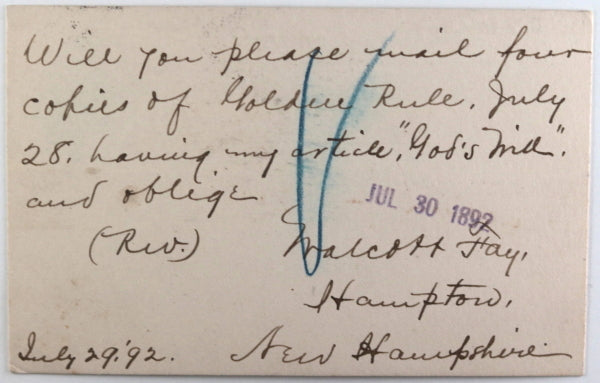 Will you please mail four
copies of Golden Rule, July
28. having my article, "God's Will".
and oblige
JUL 30 1892
(Rev.) Walcott Fay,
Hampton,
July 29. '92. New Hampshire